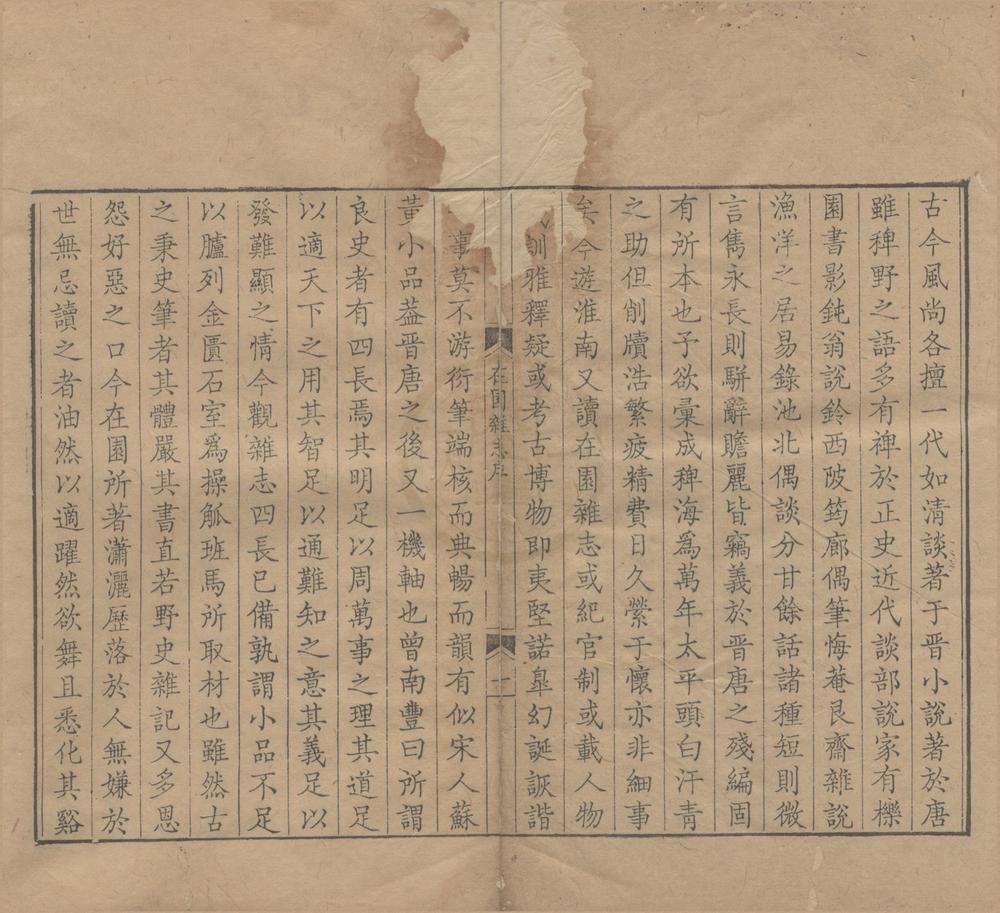 古今風尚各擅一代如清談著于晉小說著於唐
雖稗野之語多有裨於正史近代談部說家有櫟
園書影鈍翁說鈴西陂筠廊偶筆悔菴艮齋雜說
漁洋之居易錄池北偶談分甘餘話諸種短則微
言雋永長則駢辭贍麗皆竊義於晉唐之殘編固
有所本也予欲彙成稗海爲萬年太平頭白汗青
之助但削牘浩繁疲精費日久縈于懷亦非細事
矣今遊淮南又讀在園雜志或紀官制或載人物
訓雅釋疑或考古博物即夷堅諾臯幻誕詼諧
在園雜志序
十
事莫不游衍筆端核而典暢而韻有似宋人蘇
黃小品葢晉唐之後又一機軸也曾南豐曰所謂
良史者有四長焉其明足以周萬事之理其道足
以適天下之用其智足以通難知之意其義足以
發難顯之情今觀雜志四長已備孰謂小品不足
以臚列金匱石室爲操觚班馬所取材也雖然古
之秉史筆者其體嚴其書直若野史雜記又多恩
怨好惡之口今在園所著瀟灑歷落於人無嫌於
世無忌讀之者油然以適躍然欲舞且悉化其谿